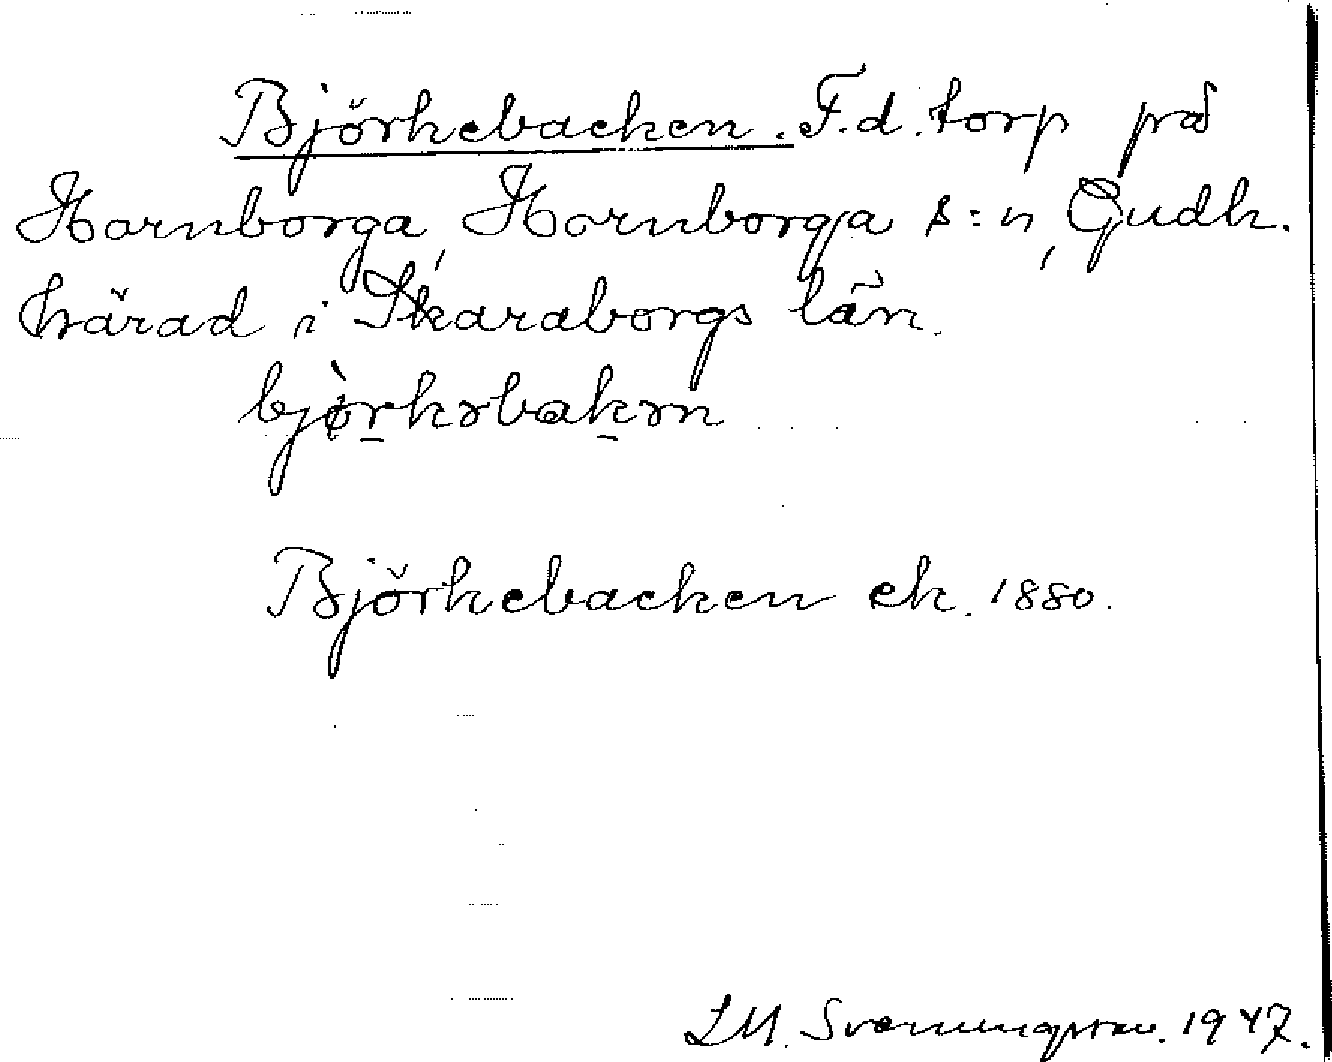 Björkebacken. F.d. torp på
Hornborga, Hornborga s:n, Gudh.
härad i Skaraborgs län.
bjòrkəbakən
Björkebacken ek. 1880.
J.M. Svenungsson. 1947.